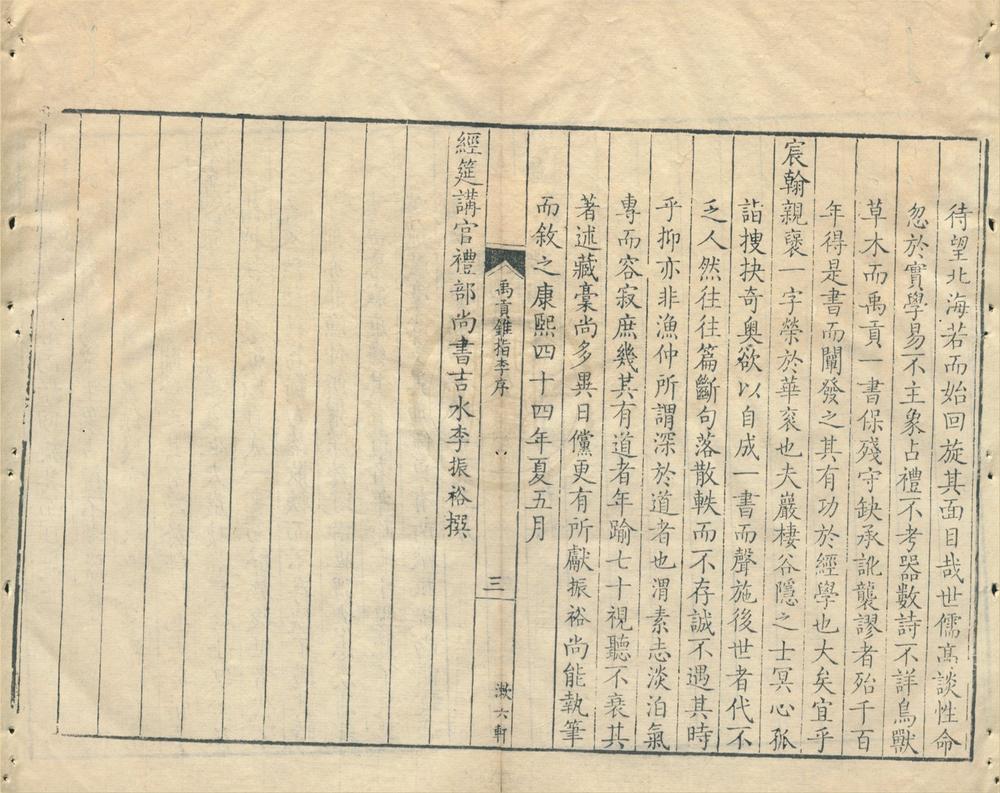 待望北海若而始回旋其面目哉世儒髙談性命
忽於實學易不主象占禮不考器數詩不詳鳥獸
草木而禹貢一書保殘守缺承訛襲謬者殆千百
年得是書而闡發之其有功於經學也大矣宜乎
宸翰親褒一字榮於華衮也夫巖棲谷隱之士冥心孤
詣捜抉奇奥欲以自成一書而聲施後世者代不
乏人然往往篇斷句落散軼而不存誠不遇其時
乎抑亦非漁仲所謂深於道者也渭素志淡泊氣
專而容寂庶幾其有道者年踰七十視聽不衰其
著述藏稾尚多異日儻更有所獻振裕尚能執筆
而敘之康熙四十四年夏五月
禹貢錐指李序
三
漱六軒
經筵講官禮部尚書吉水李振裕撰